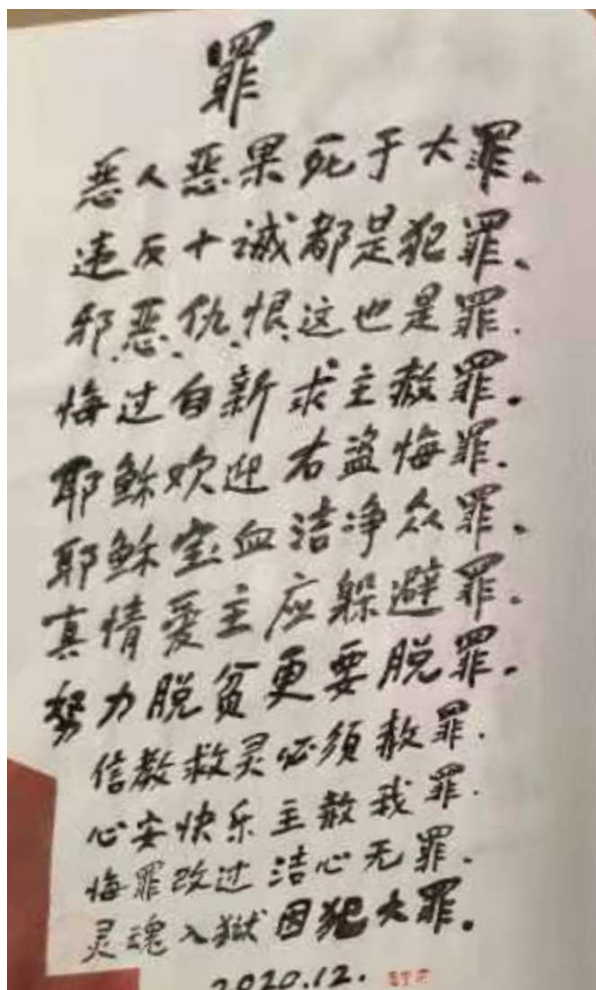 罪
恶人恶果死于大罪。
违反十诫都是犯罪、
邪、恶、仇、恨、这也是罪.
悔过自新求主赦罪。
耶稣欢迎右盗悔罪.
耶稣宝血洁净众罪.
真情爱主应躲避罪.
努力脱贫更要脱罪。
信教救灵必须赦罪.
心安快乐主赦我罪.
悔罪改过洁心无罪.
灵魂入獄因犯大罪。
2020.12.